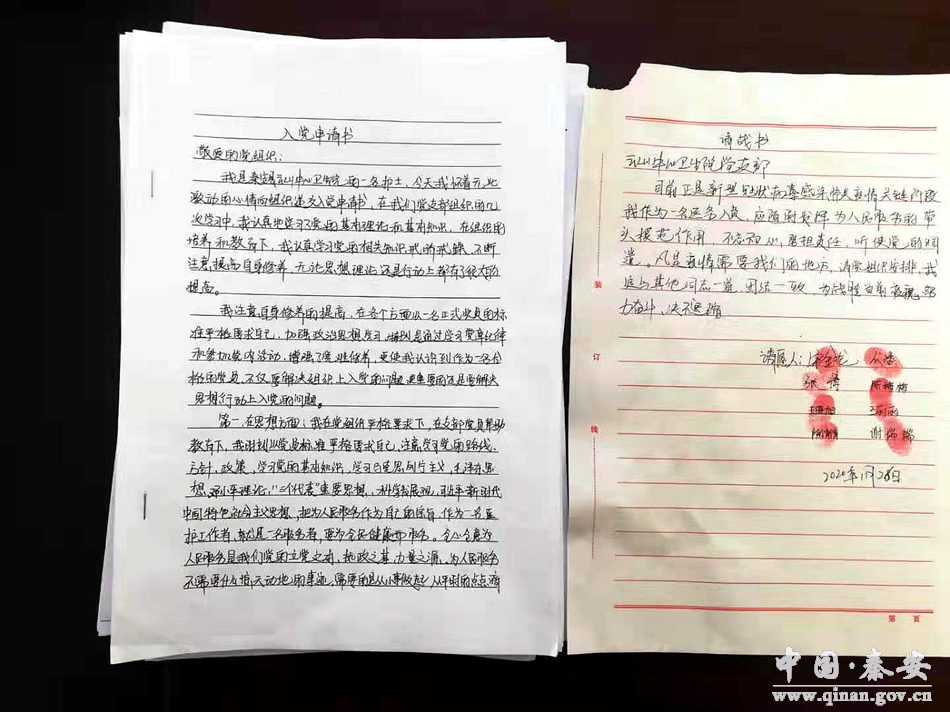 入党申请书
敬爱的党组织：
我是秦安县云山中心卫生院的一名护士，今天我怀着无比
激动的心情向组织递交入党申请书，在我们党支部组织的几
次学习中，我认真地学习了党的基本理论和基本知识，在组织的
培养和教育下，我认真学习党的相关知识 不断
注意提高自身修养，无论思想理论还是行动上都有了很大的
提高。
我注意自身修养的提高，在各个方面以一名正式党员的标
准严格要求自己，加强政治思想学习，特别是通过学习党章纪律
和参加党内活动，增强了党性修养，更使我认识到作为一名合
格的党员，不仅要解决组织上入党的问题，更重要的还是要解决
思想行动上入党的问题。
第一、在思想方面：我在党组织严格要求下，在支部党员帮助
教育下，我时刻以党员标准严格要求自己，注意学习党的路线、
方针、政策，学习党的基本知识，学习马克思列宁主义，毛泽东思
想、邓小平理论，“三个代表”重要思想，科学发展观，习近平新时代
中国特色社会主义思想，把为人民服务作为自己的宗旨，作为一名医
护工作者，就是一名服务者，要为全民健康而服务。全心全意为
人民服务是我们党的立党之本，执政之基，力量之源。为人民服务
不需要什么惊天动地的事迹，需要的是从小事做起，从平时的点点滴
请战书
云山中心卫生院党支部
目前正是新型冠状病毒感染肺炎疫情关键阶段
我作为一名医务人员，应随时发挥为人民服务的带
头模范作用，不忘初心，勇担责任，听从党的调
遣。凡是疫情需要我们的地方，请党组织安排，我
将与其他同志一道，团结一致，为战胜当前疫魔努
力奋斗，决不退缩
请愿人：
张博 陈梅梅
王丽丽
谢瑞瑞
2020年1月28日
装
订
线
第 页
中国·秦安
www.qinan.gov.cn